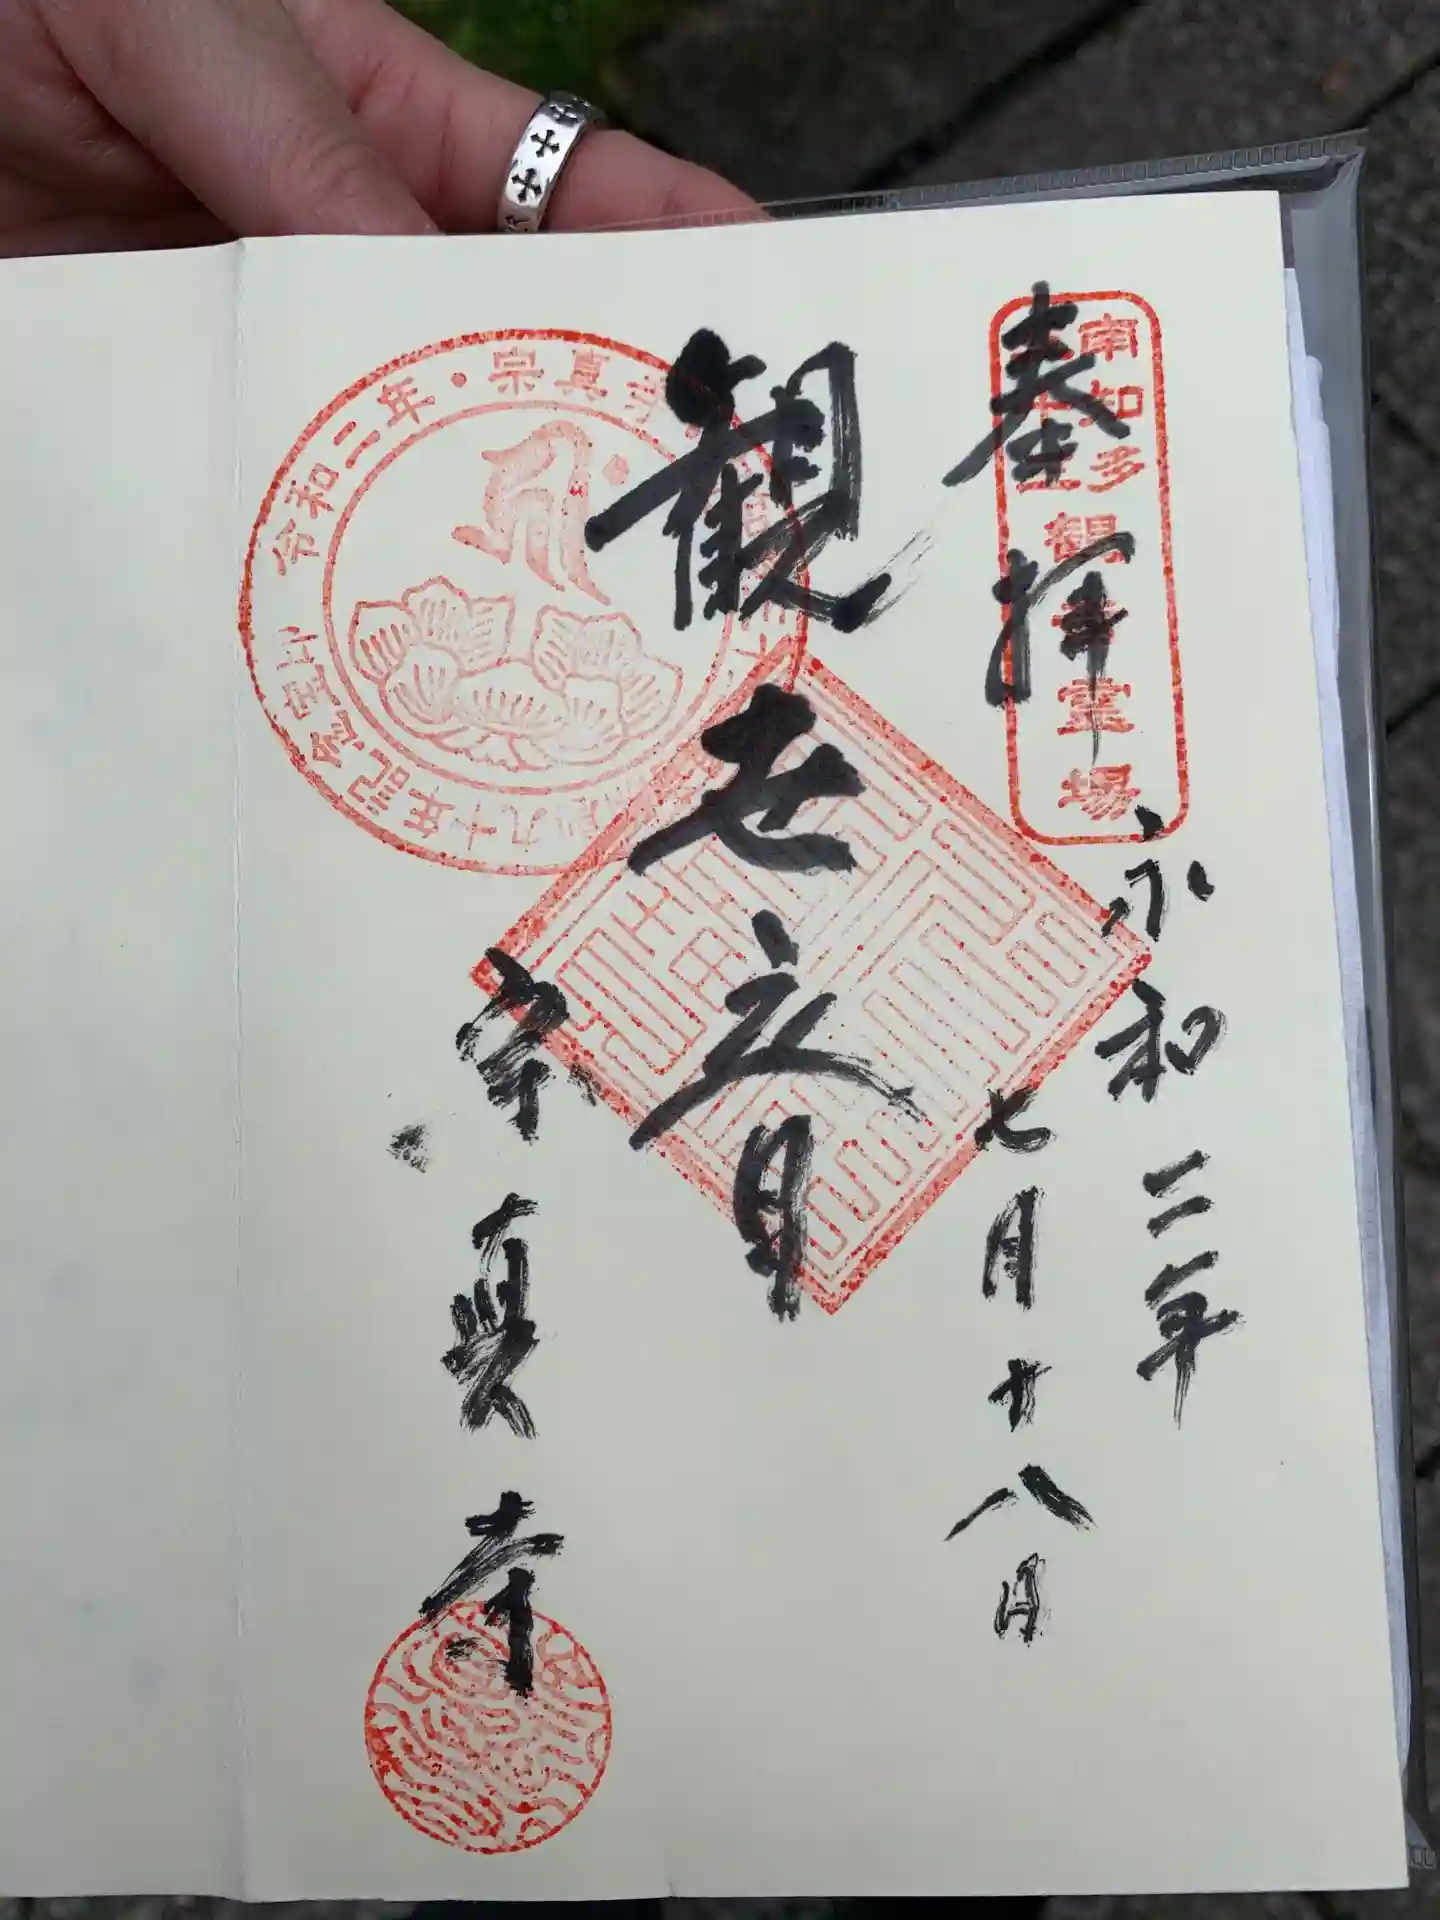 南知多三十三観音霊場
奉拝
令和二年
七月十八日
観世音
宗真寺
令和二年・宗真寺
九十年記念宝印